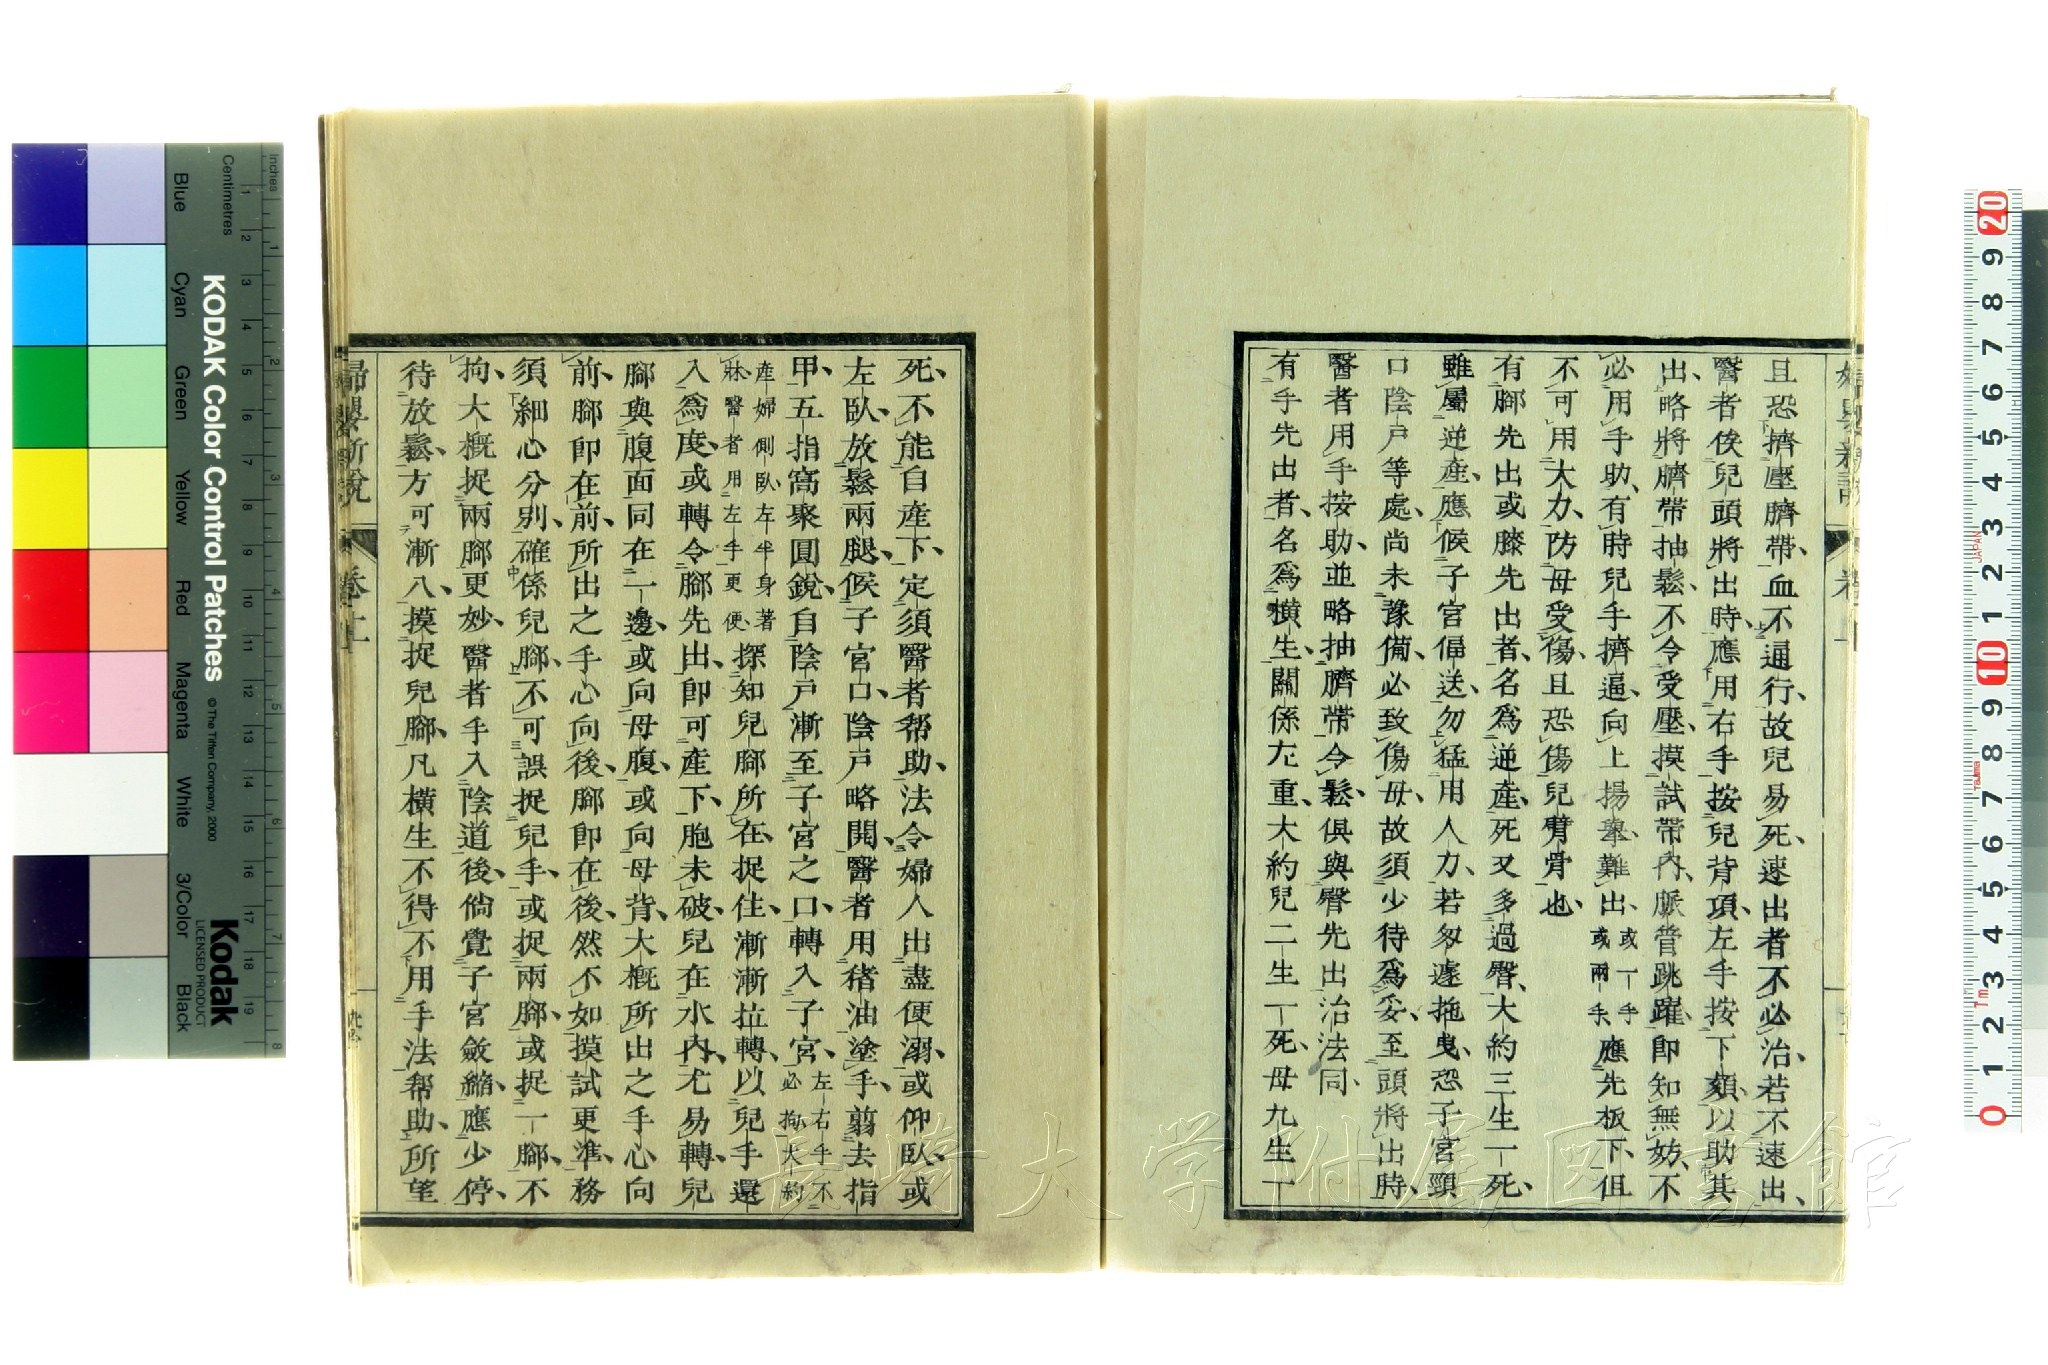 且恐擠壓臍帶、血不通行、故兒易死、速出者不必治、若不速出、
醫者俟兒頭將出時、應用右手按兒背項、左手按下頦、以助其
出、略將臍帶抽鬆、不令受壓、摸試帶內、脈管跳躍、即知無妨、不
必用手助、有時兒手擠逼、向上揚舉、難出、或一手或兩手、應先板下、但
不可用大力、防母受傷、且恐傷兒臂骨也、
有腳先出或膝先出者、名爲逆產、死又多過臀、大約三生一死、
雖屬逆產、應候子宮偪送、勿猛用人力、若匆遽拖曳、恐子宮頸
口陰戶等處、尚未豫備、必致傷母、故須少待爲妥、至頭將出時、
醫者用手按助、並略抽臍帶令鬆、俱與臀先出治法同、
有手先出者、名爲橫生、關係尤重、大約兒二生一死、母九生一
死、不能自產下、定須醫者帮助、法令婦人出盡便溺、或仰臥、或
左臥、放鬆兩腿、候子宮口、陰戶略開、醫者用猪油塗手、翦去指
甲、五指窩聚圓銳、自陰戶漸至子宮之口、轉入子宮、左右手不必拘、大約
產婦側臥、左半身著牀、醫者用左手更便、探知兒腳所在、捉住漸漸拉轉、以兒手還
入爲度、或轉令腳先出、即可產下、胞未破、兒在水內、尤易轉、兒
腳與腹面同在一邊、或向母腹、或向母背、大概所出之手心向
前、腳即在前、所出之手心向後、腳即在後、然不如摸試更準、務
須細心分別、確係兒腳、不可誤捉兒手、或捉兩腳、或捉一腳、不
拘、大概捉兩腳更妙、醫者手入陰道後、倘覺子宮斂縮、應少停、
待放鬆、方可漸入、摸捉兒腳、凡橫生不得不用手法帮助、所望
婦嬰新說
卷上
KODAK Color Control Patches
© The Tiffen Company, 2000
Kodak
LICENSED PRODUCT
Inches
Centimetres
Blue
Cyan
Green
Yellow
Red
Magenta
White
3/Color
Black
長崎大学附属図書館